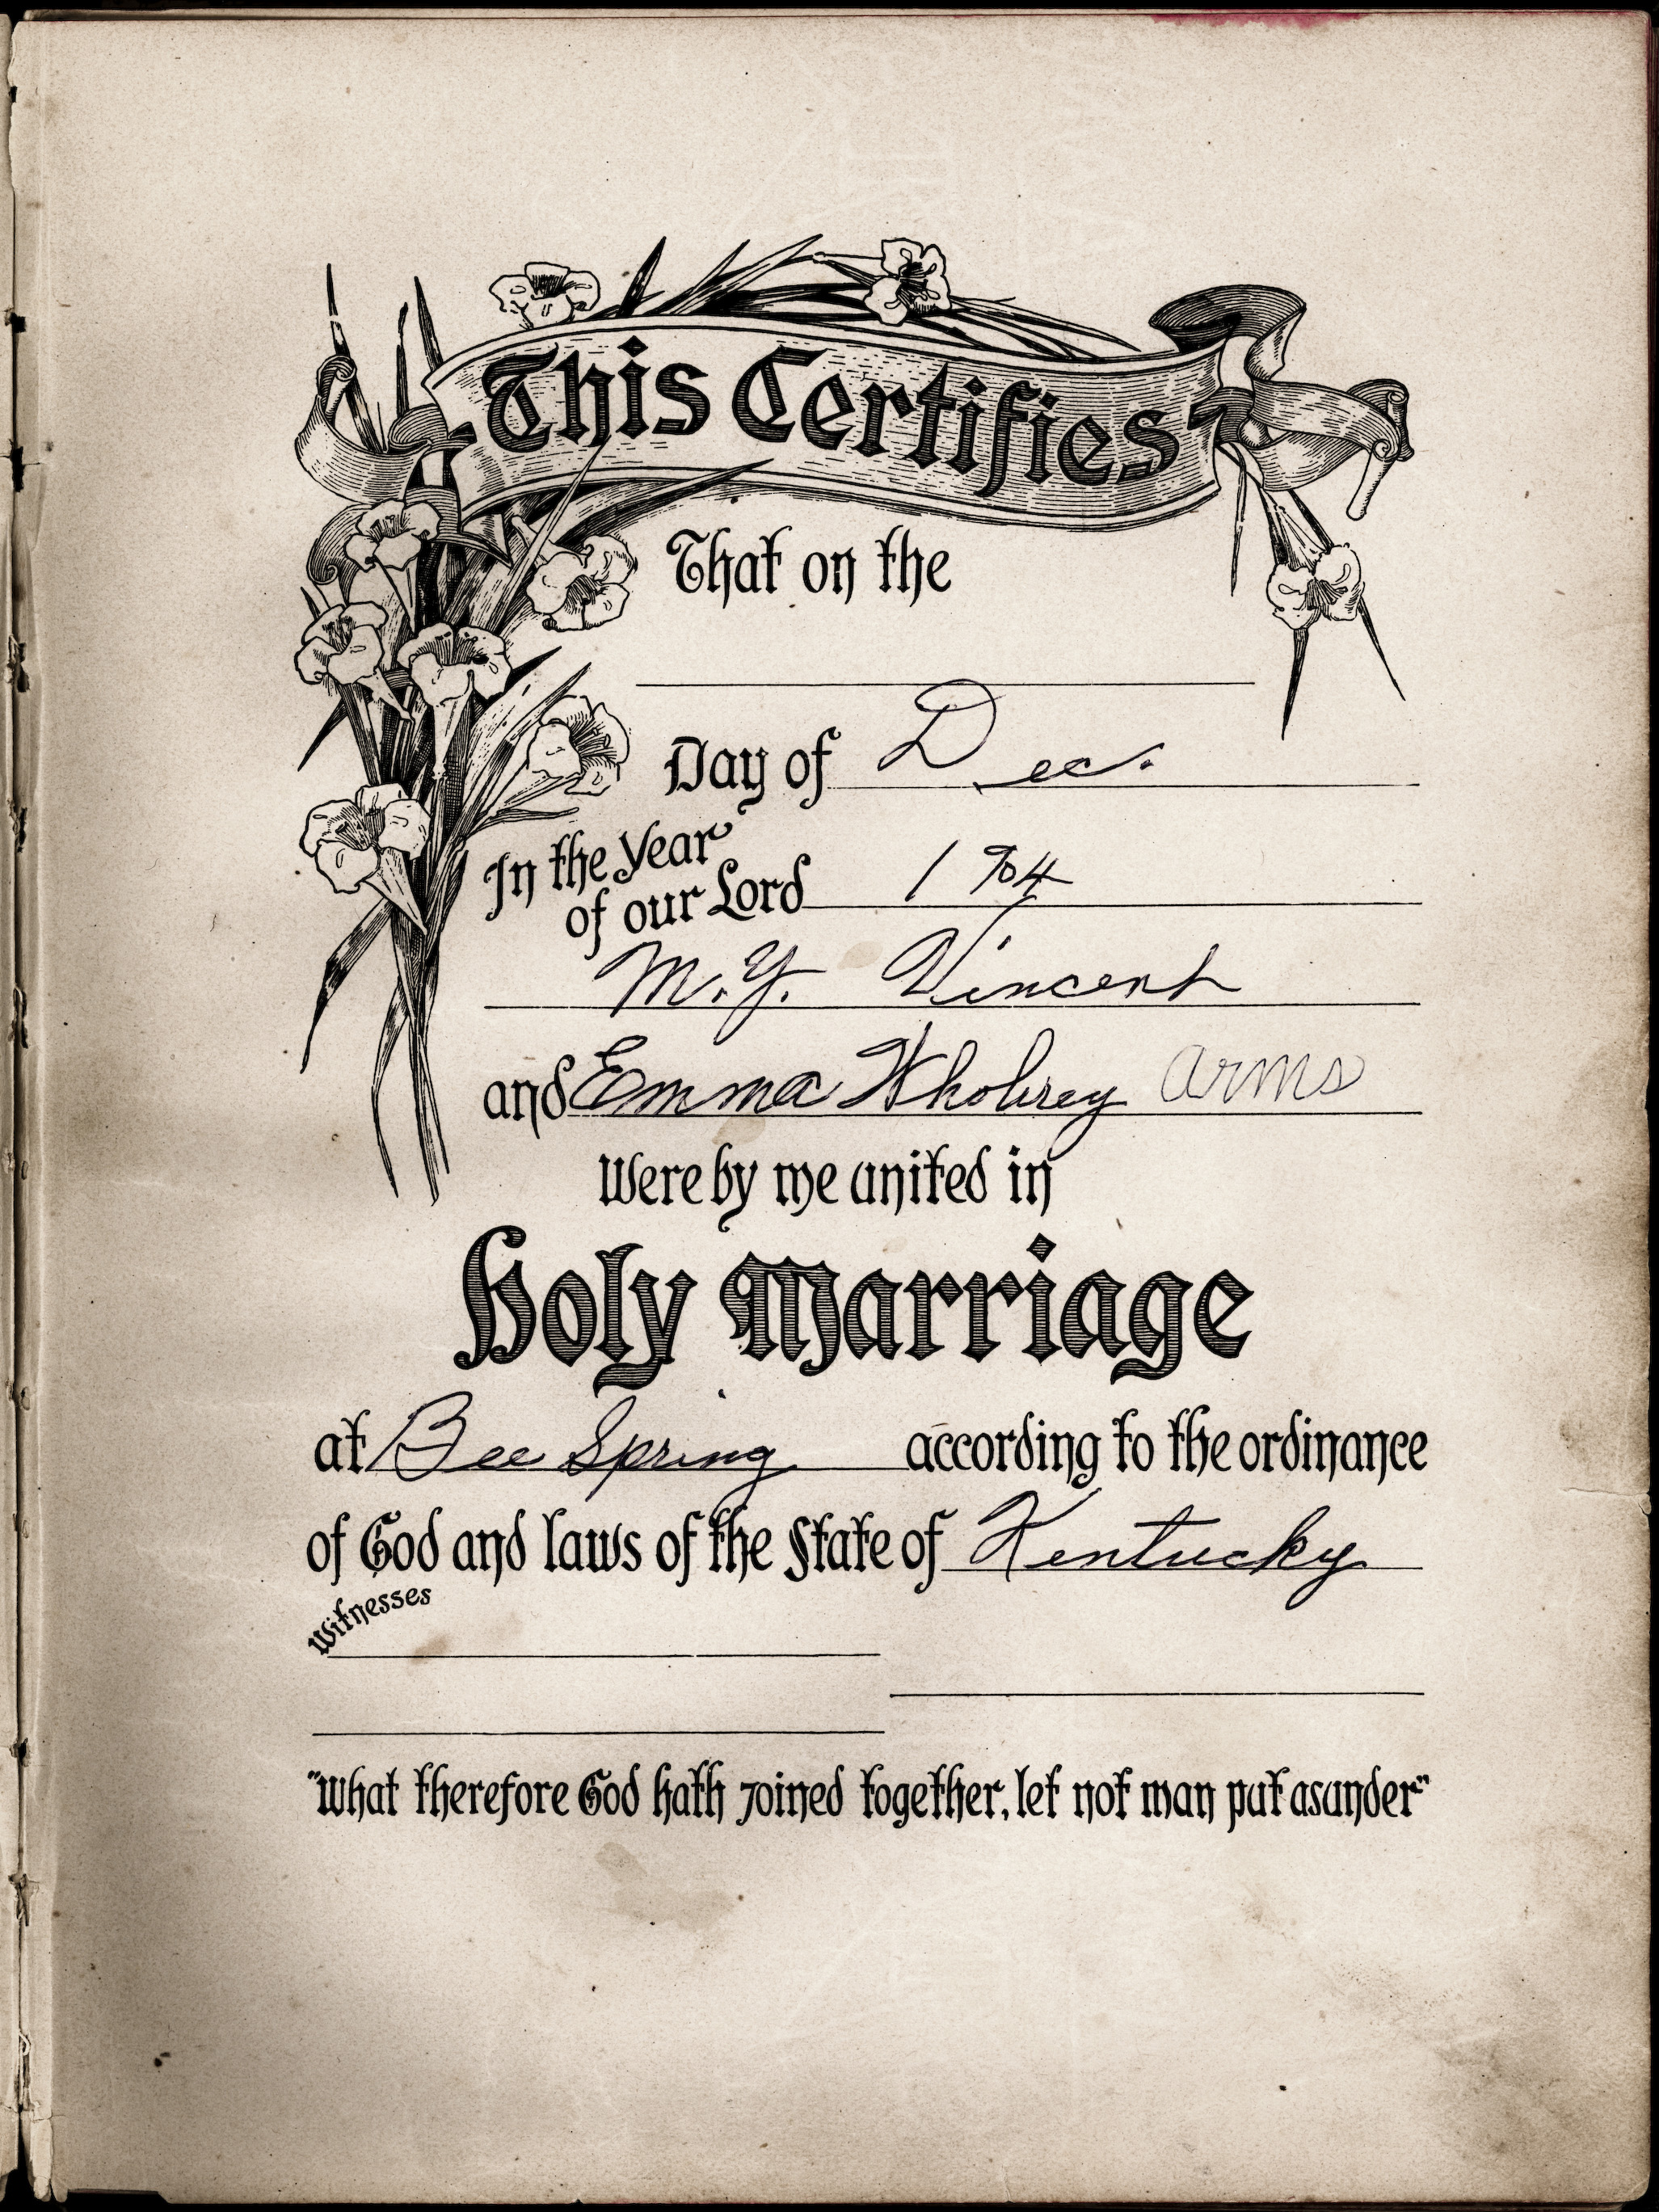 This Certifies
That on the
Day of Dec.
In the Year
of our Lord 1904
M. Y. Vincent
and Emma Wholrey arms
Were by me united in
Holy Marriage
at Bee Spring according to the ordinance
of God and laws of the State of Kentucky
Witnesses
"What therefore God hath joined together, let not man put asunder"